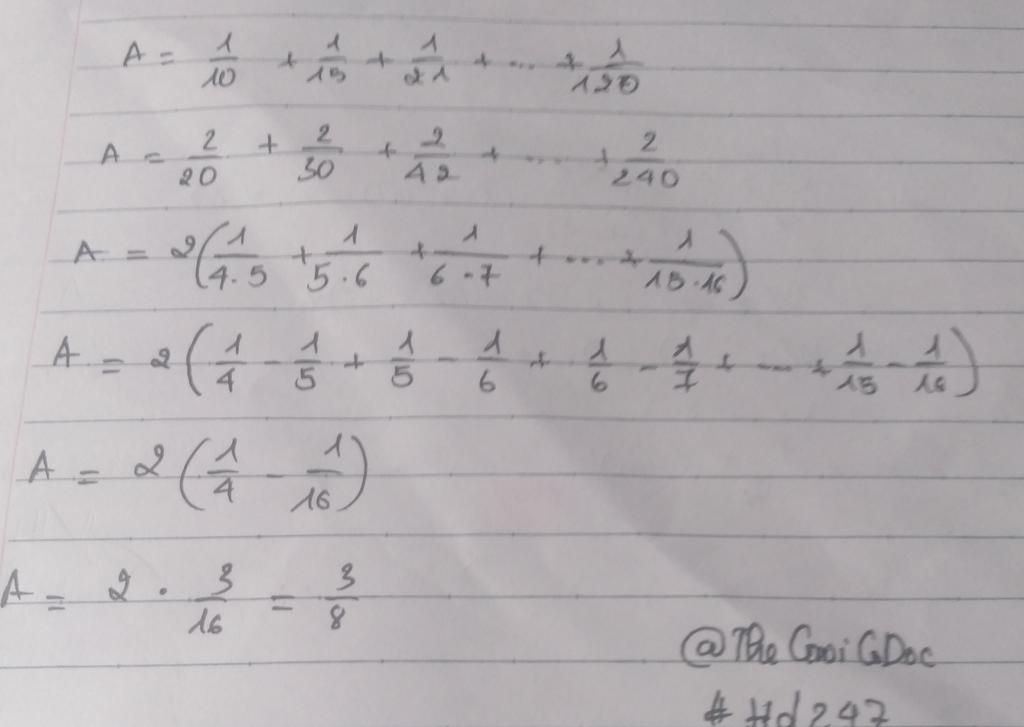 A = 1/10 + 1/15 + 1/21 + ... + 1/120
A = 2/20 + 2/30 + 2/42 + .... + 2/240
A = 2(1/4.5 + 1/5.6 + 1/6.7 + ... + 1/15.16)
A = 2(1/4 - 1/5 + 1/5 - 1/6 + 1/6 - 1/7 + ... + 1/15 - 1/16)
A = 2(1/4 - 1/16)
A = 2 . 3/16 = 3/8
# Hd247